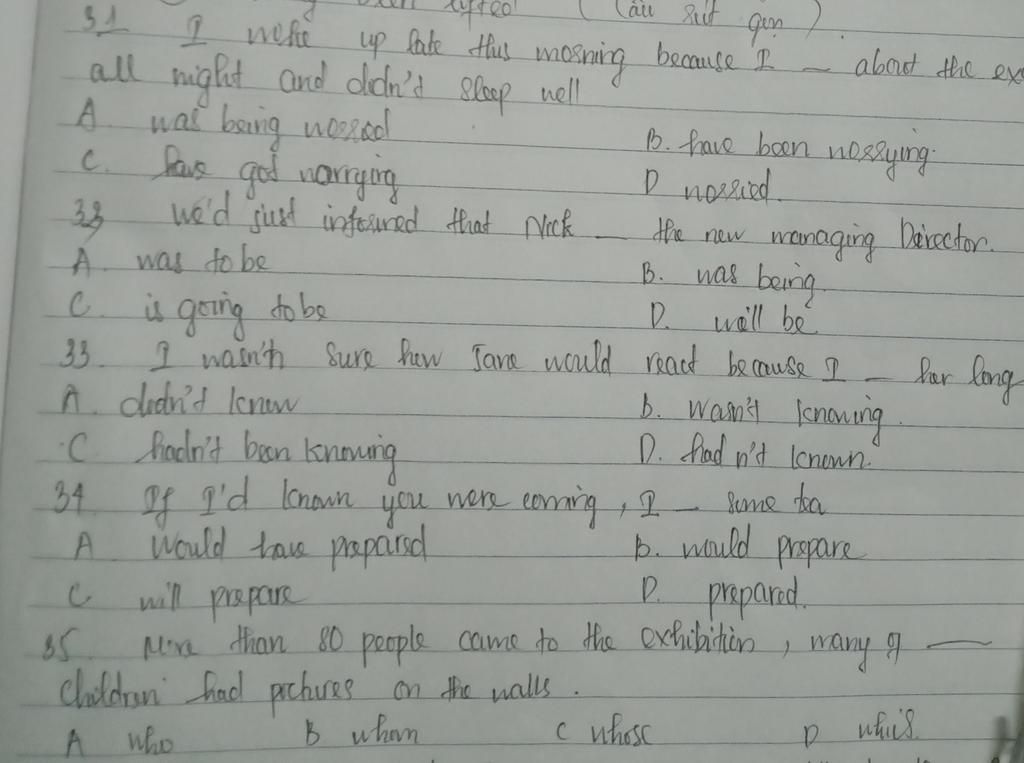 ( Câu rút gọn ).
31 I woke up late this morning because I _ about the ex
all night and didn't sleep well
A was being worried B. have been worrying.
C. have got worrying D worried.
33 we'd just that Nick _ the new managing Director.
A. was to be B. was being.
C. is going to be D. will be
33. I wasn't sure how Jane would react because I _ her long
A. didn't know b. wasn't knowing.
C hadn't been knowing D. had n't known.
34. If I'd known you were coming, I _ some tea
A Would have prepared B. would prepare
C will prepare D. prepared.
35. More than 80 people came to the exhibition, many of __
children had pictures on the walls.
A who B whom C whose D who's.